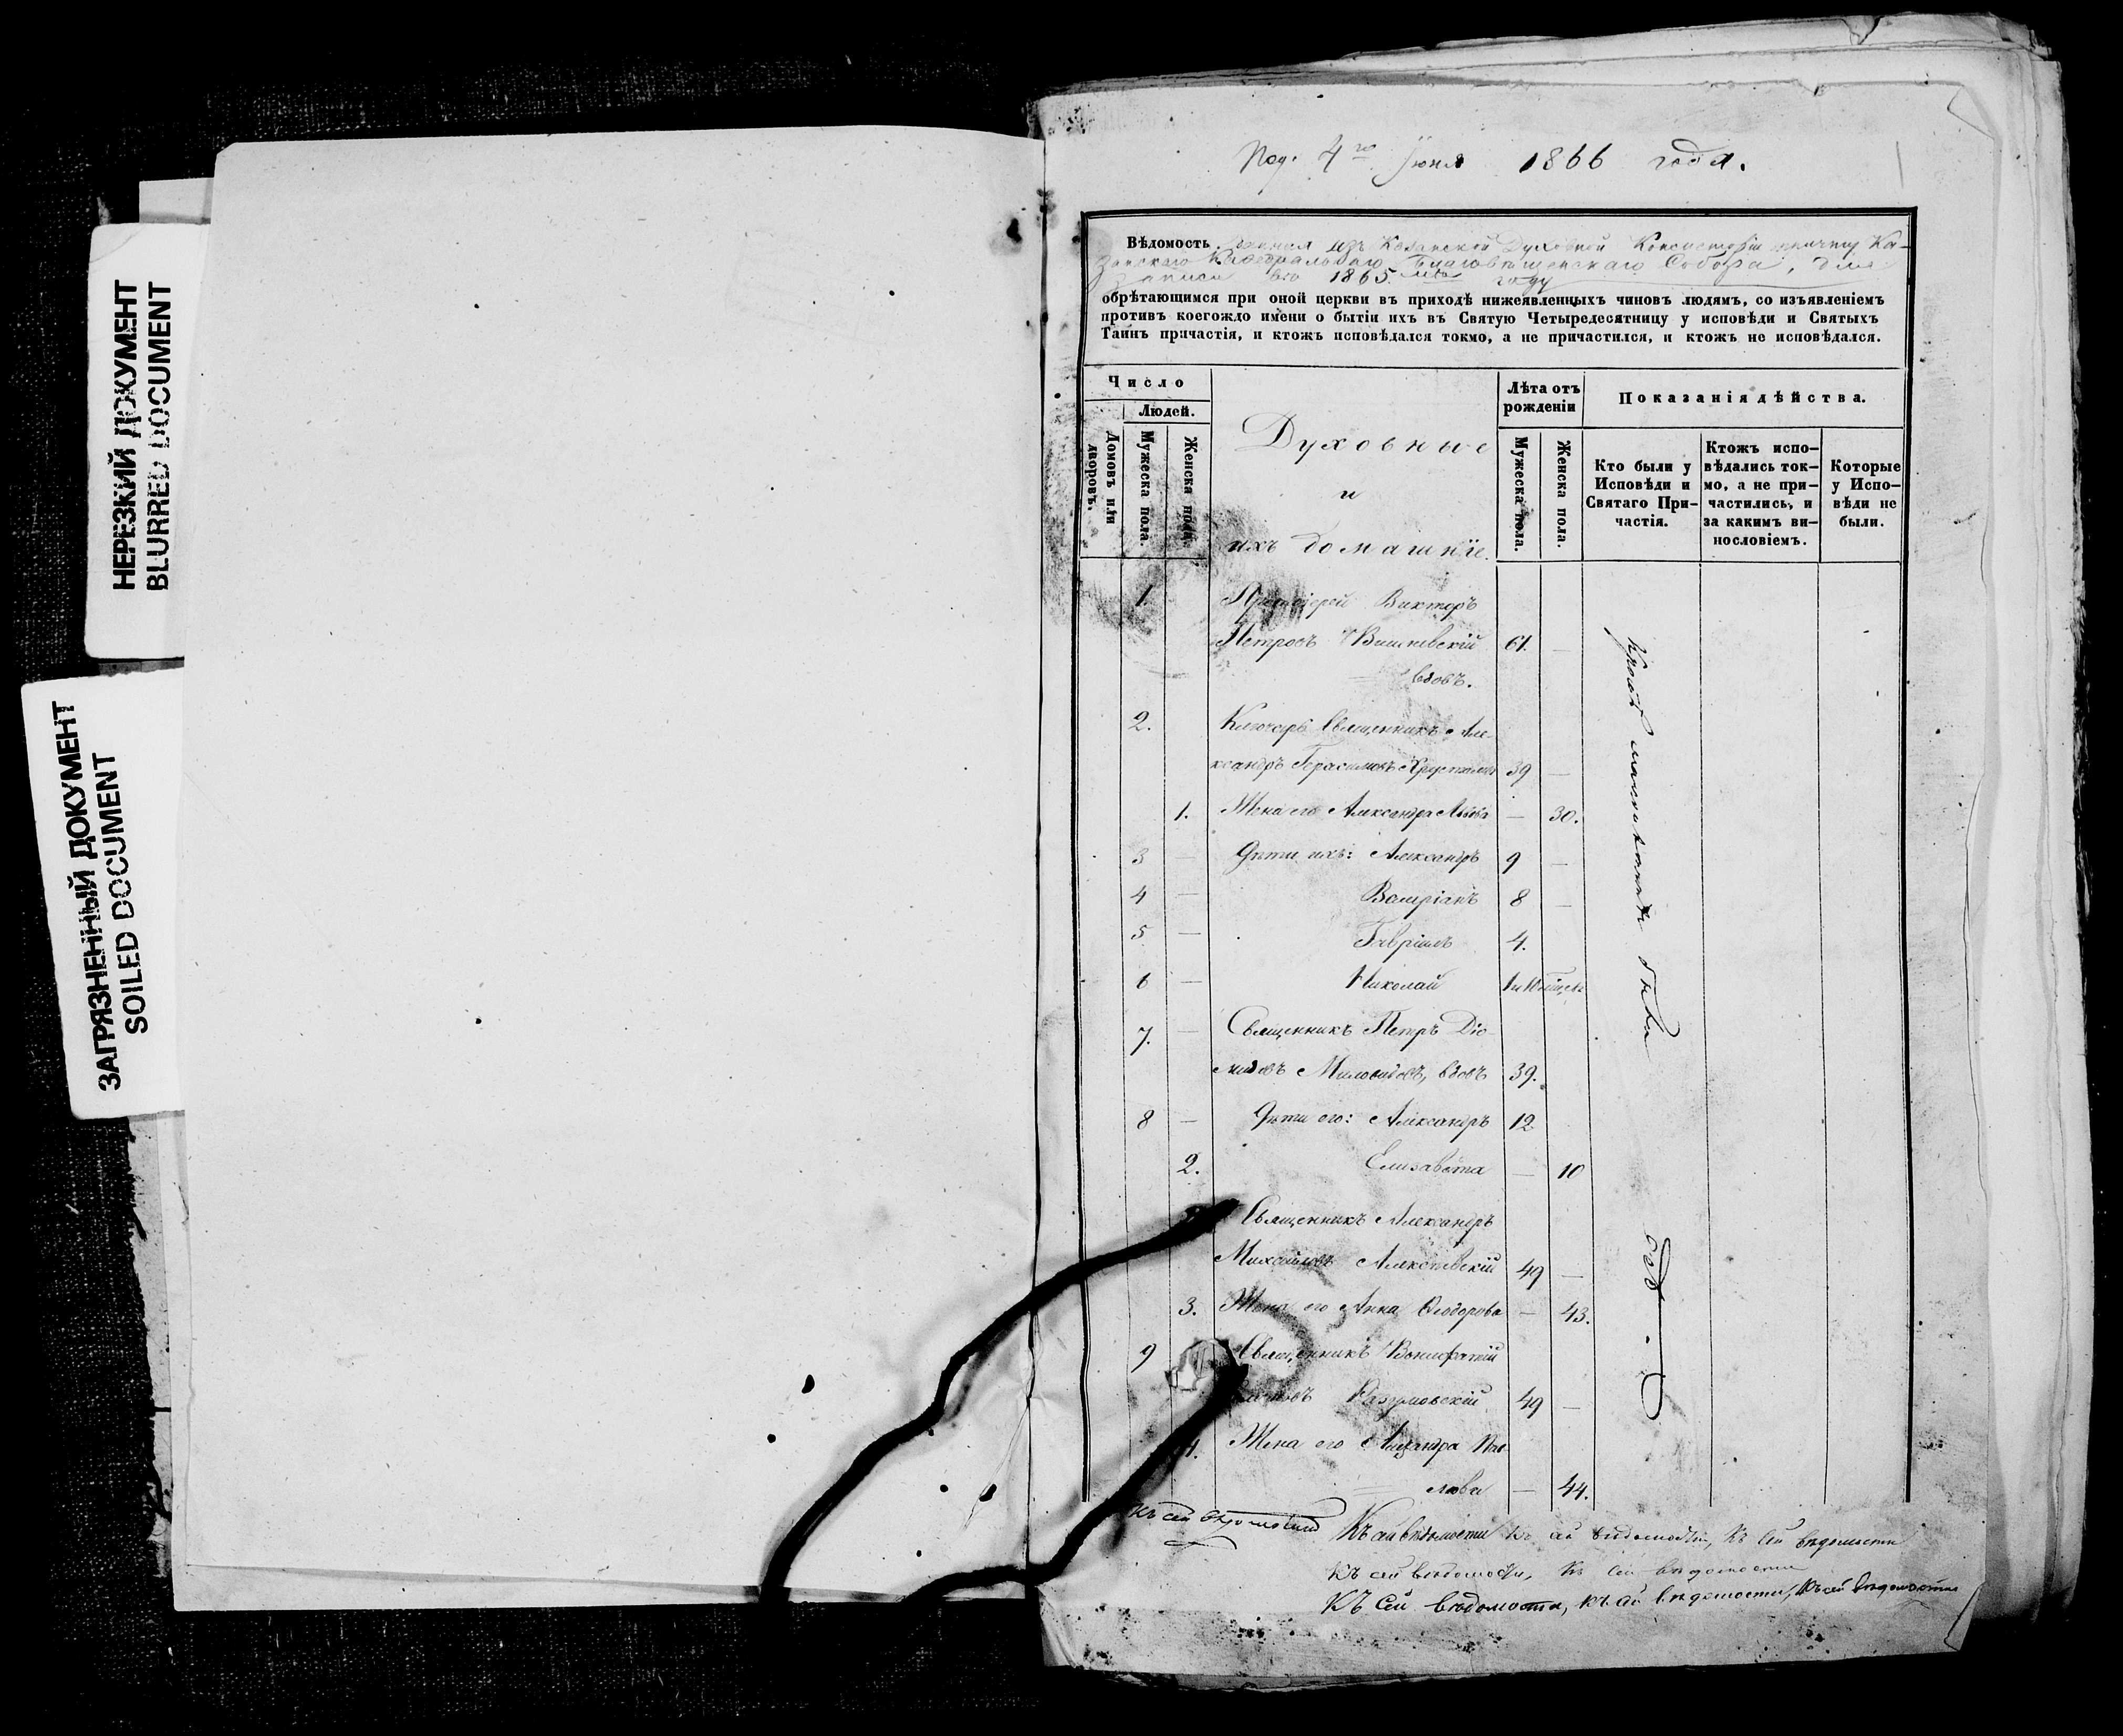 НЕРЕЗКИЙ ДОКУМЕНТ
BLURRED DOCUMENT
ЗАГРЯЗНЕННЫЙ ДОКУМЕНТ
SOILED DOCUMENT
Под. 4го Іюня 1866 года.
Вѣдомость данная изъ Казанской Духовной Консисторіи причту Ка-
занскаго Каѳедральнаго Благовѣщенскаго Собора, для
записи въ 1865мъ году
обрѣтающимся при оной церкви въ приходѣ нижеявленныхъ чиновъ людямъ, со изъявленіемъ
противъ коегождо имени о бытіи ихъ въ Святую Четыредесятницу у исповѣди и Святыхъ
Таинъ причастія, и ктожъ исповѣдался токмо, а не причастился, и ктожъ не исповѣдался.
Число
Людей.
Домовъ или дворовъ.
Мужеска пола.
Женска пола.
Духовные
и
ихъ домашніе.
Лѣта отъ
рожденіи
Мужеска пола.
Женска пола.
Показанія дѣйства.
Кто были у
Исповѣди и
Святаго При-
частія.
Ктожъ испо-
вѣдались ток-
мо, а не при-
частились, и
за какимъ ви-
нословіемъ.
Которые
у Испо-
вѣди не
были.
1. Протоіерей Викторъ
Петровъ Вишневскій 61. —
вдовъ.
2. Ключарь Священникъ Але-
ксандръ Герасимовъ 39 —
1. Жена его Александра Львова — 30.
3 — Дѣти ихъ: Александръ 9 —
4 — Валеріанъ 8 —
5 — Гавріилъ 4.
6 — Николай
7. — Священникъ Петръ Діо-
мидовъ Миловидовъ, вдовъ 39.
8 — Дѣти его: Александръ 12
2. Елизавета — 10
Священникъ Александръ
Михайловъ 49 —
3. Жена его Анна Ѳеодорова — 43.
9 Священникъ Вонифатій
Разумовскій 49 —
4. Жена его Александра Пав-
лова — 44.
Кромѣ были
Къ сей вѣдомости
Къ сей вѣдомости Къ сей вѣдомости, Къ сей вѣдомости
Къ сей вѣдомости, Къ сей вѣдомости
Къ сей вѣдомости, къ сей вѣдомости, Къ сей вѣдомости